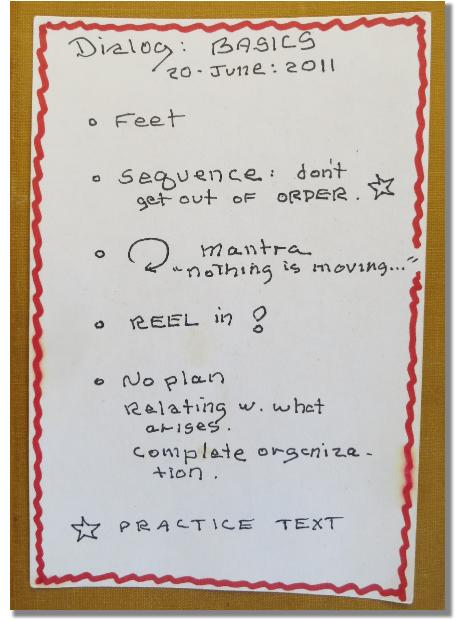 Dialog: BASICS
20-June: 2011
Feet
Sequence: don't
get out OF ORDER.
mantra
"nothing is moving..."
REEL in
No plan
Relating w. what
arises.
Complete organiza-
tion.
PRACTICE TEXT